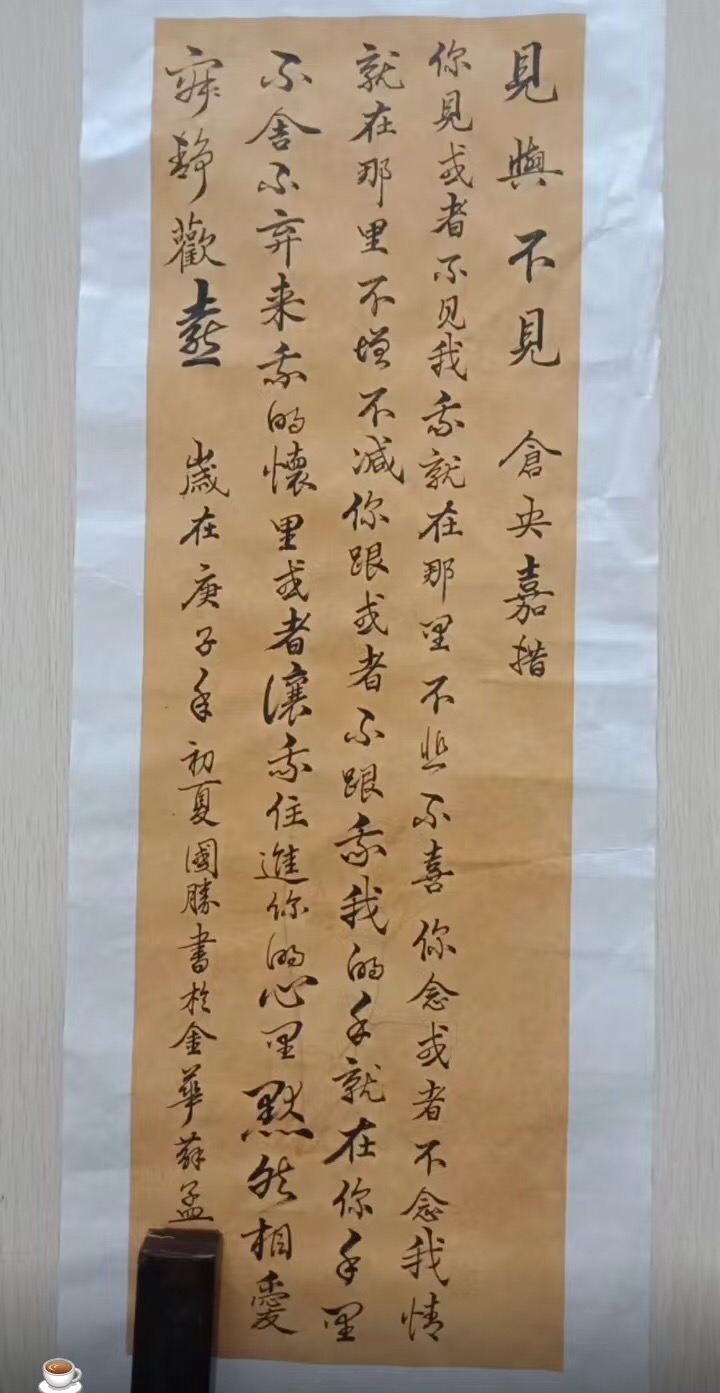 見與不見 倉央嘉措
你見或者不见我我就在那里不悲不喜你念或者不念我情
就在那里不增不减你跟或者不跟我我的手就在你手里
不舍不弃来我的懷里或者讓我住進你的心里默然相愛
寂静歡喜 嵗在庚子年初夏國勝書於金華蘇孟